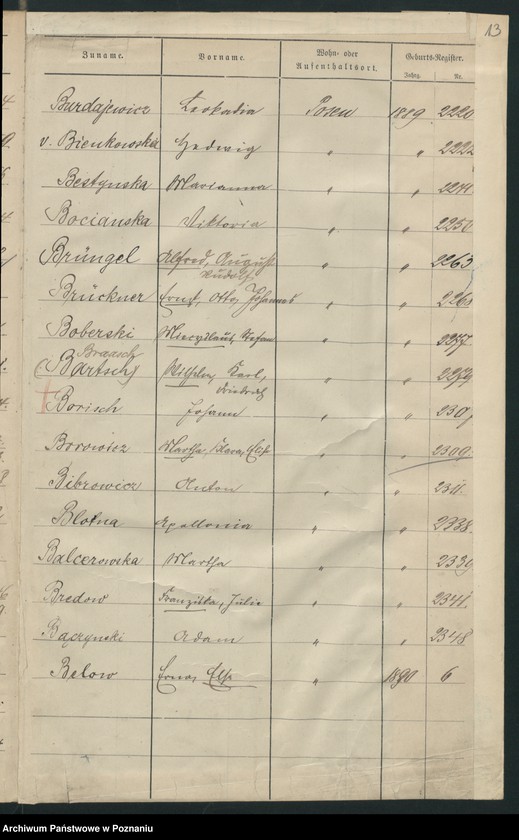 13
Zuname. Vorname. Wohn- oder Aufenthaltsort. Geburts-Register.
Jahrg. Nr.
Burdajewicz Leokadia Posen 1889 2220
v. Bienkowska Hedwig " " 222
Bestynska Marianna " "
Bocianska Viktoria " " 2250
Brüngel Alfred, August " " 2263
Rudolf
Brückner Ernst, Otto, Johannes " " 226
Boberski Miecyslaus, Stefan " " 2277
Braasch
(Bartsch) Wilhelm, Karl, " " 2279
Friedrich
Borisch Johann " " 230
Borowicz Martha, Klara, Else " " 2309
Bibrowicz Anton " " 2311.
Blotna Apollonia " " 2338.
Balcerowska Martha " " 2339
Bredow Franziska, Julie " " 2341.
Bączynski Adam " " 2348.
Below Erna, Else " 1890 6
Archiwum Państwowe w Poznaniu